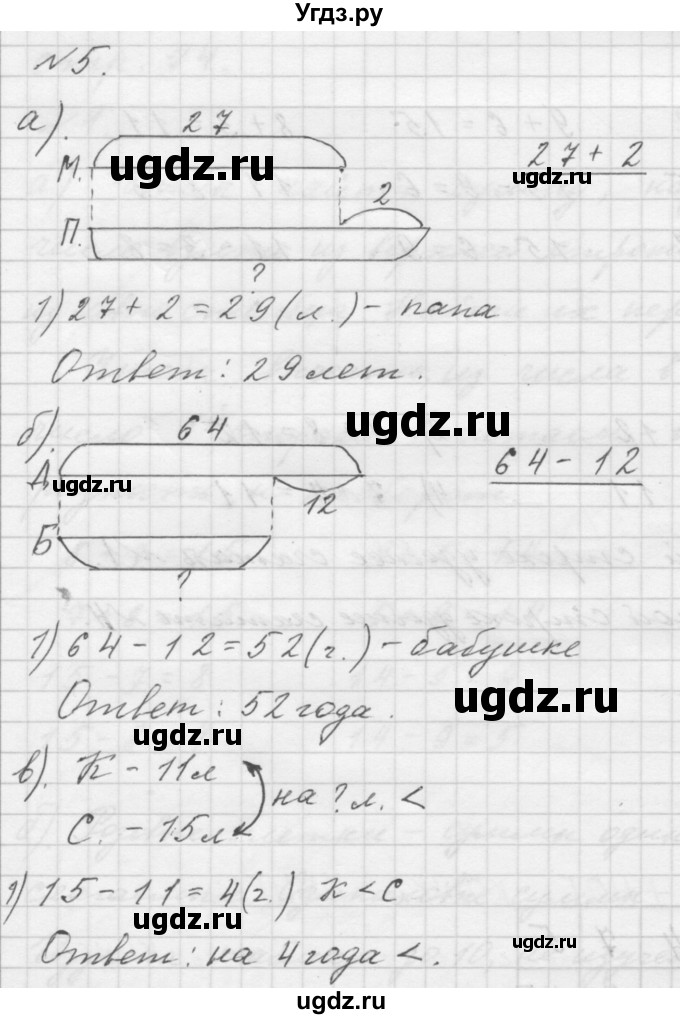 Угдз.ру
№5.
а).
27
М.
ugdz.ru
27 + 2
ugdz.ru
2
П.
?
1) 27 + 2 = 29 (л.) – папа
Ответ: 29 лет.
ugdz.ru
б).
64
Д.
ugdz.ru
64 – 12
12
Б
?
1) 64 – 12 = 52 (г.) – бабушке
Ответ: 52 года.
ugdz.ru
ugdz.ru
в). К – 11л
на ? л. <
С. – 15л
1) 15 – 11 = 4 (г.) К < С
ugdz.ru
Ответ: на 4 года <.
ugdz.ru
ugdz.ru